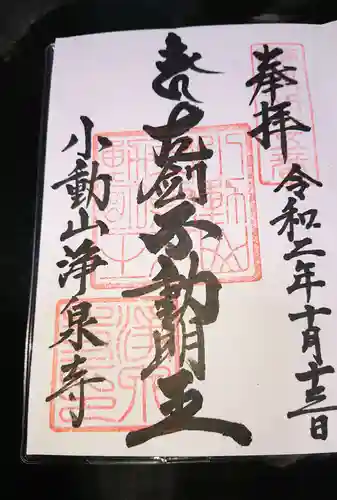 奉拝
令和二年十月十三日
古剣不動明王
小動山浄泉寺